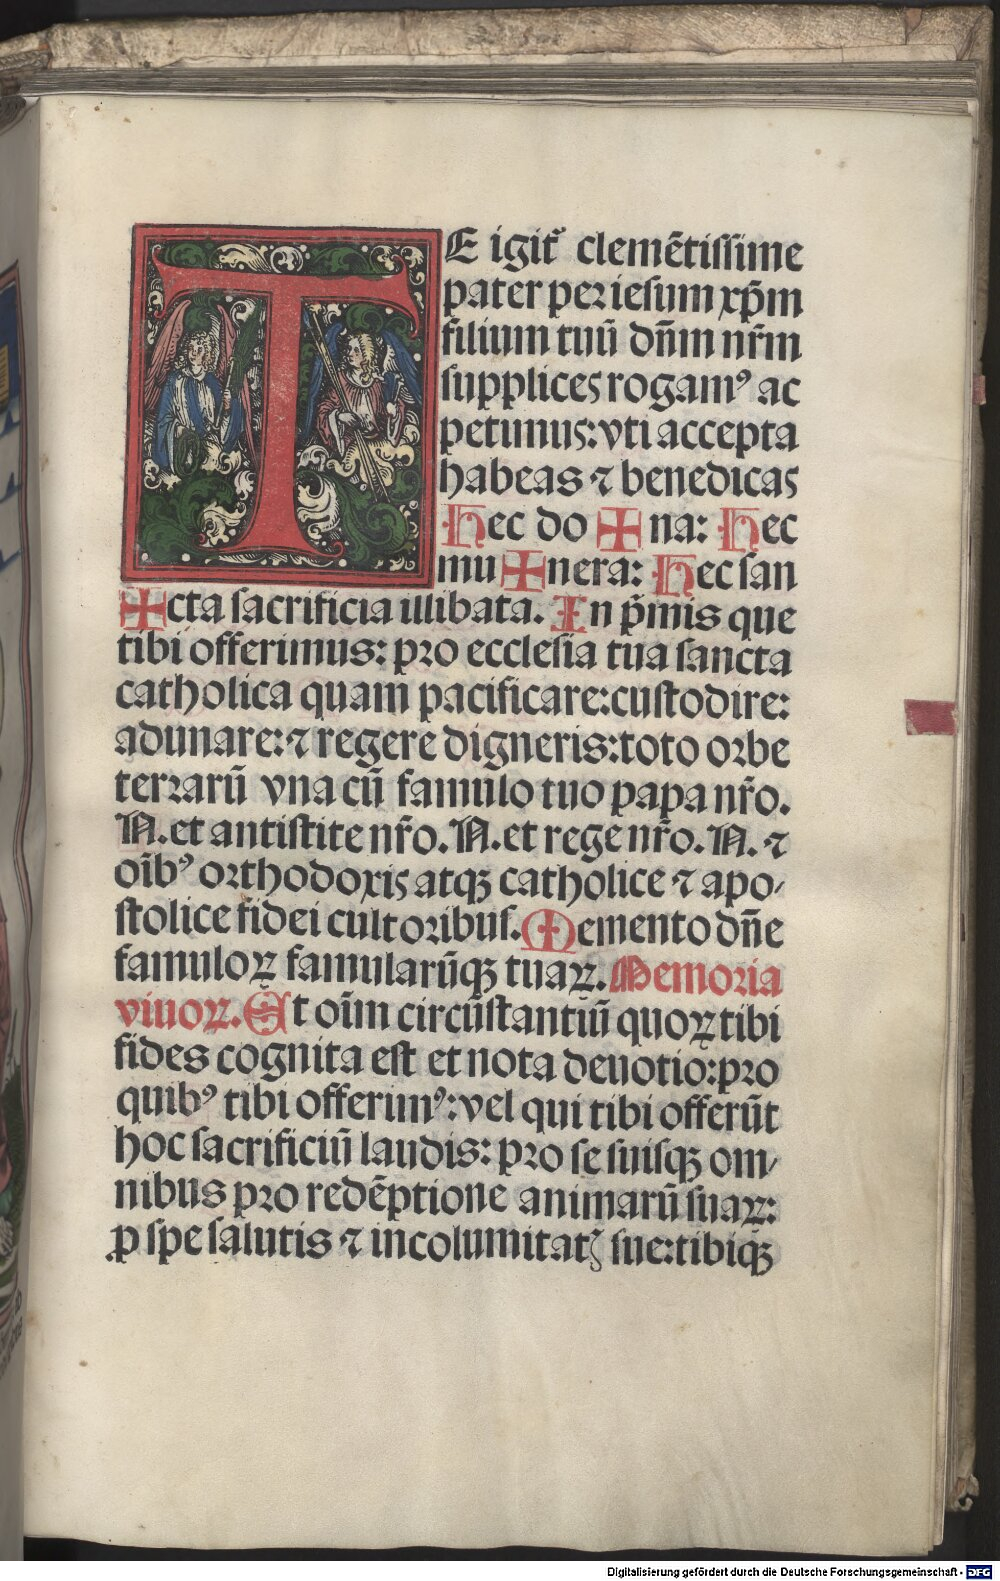 TE igit᷑ clemētissime
pater per iesum xp̄m
filium tuū dn̄m nr̄m
supplices rogamꝰ ac
petimus: vti accepta
habeas ⁊ benedicas
Hec do ✠ na: Hec
mu ✠ nera: Hec san
✠ cta sacrificia illibata. In p̄mis que
tibi offerimus: pro ecclesia tua sancta
catholica quam pacificare: custodire:
adunare: ⁊ regere digneris: toto orbe
terrarū vna cū famulo tuo papa nr̄o.
N. et antistite nr̄o. N. et rege nr̄o. N. ⁊
oīb⁹ orthodoxis atqꝫ catholice ⁊ apo⸗
stolice fidei cultoribus. Memento dn̄e
famuloꝝ famularūqꝫ tuaꝝ. Memoria
viuoꝝ. Et oīm circūstantiū quoꝝ tibi
fides cognita est et nota deuotio: pro
quibꝰ tibi offerimꝰ: vel qui tibi offerūt
hoc sacrificiū laudis: pro se suisqꝫ om⸗
nibus pro redēptione animarū suaꝝ:
ꝓ spe salutis ⁊ incolumitatꝭ sue: tibiqꝫ
Digitalisierung gefördert durch die Deutsche Forschungsgemeinschaft - DFG